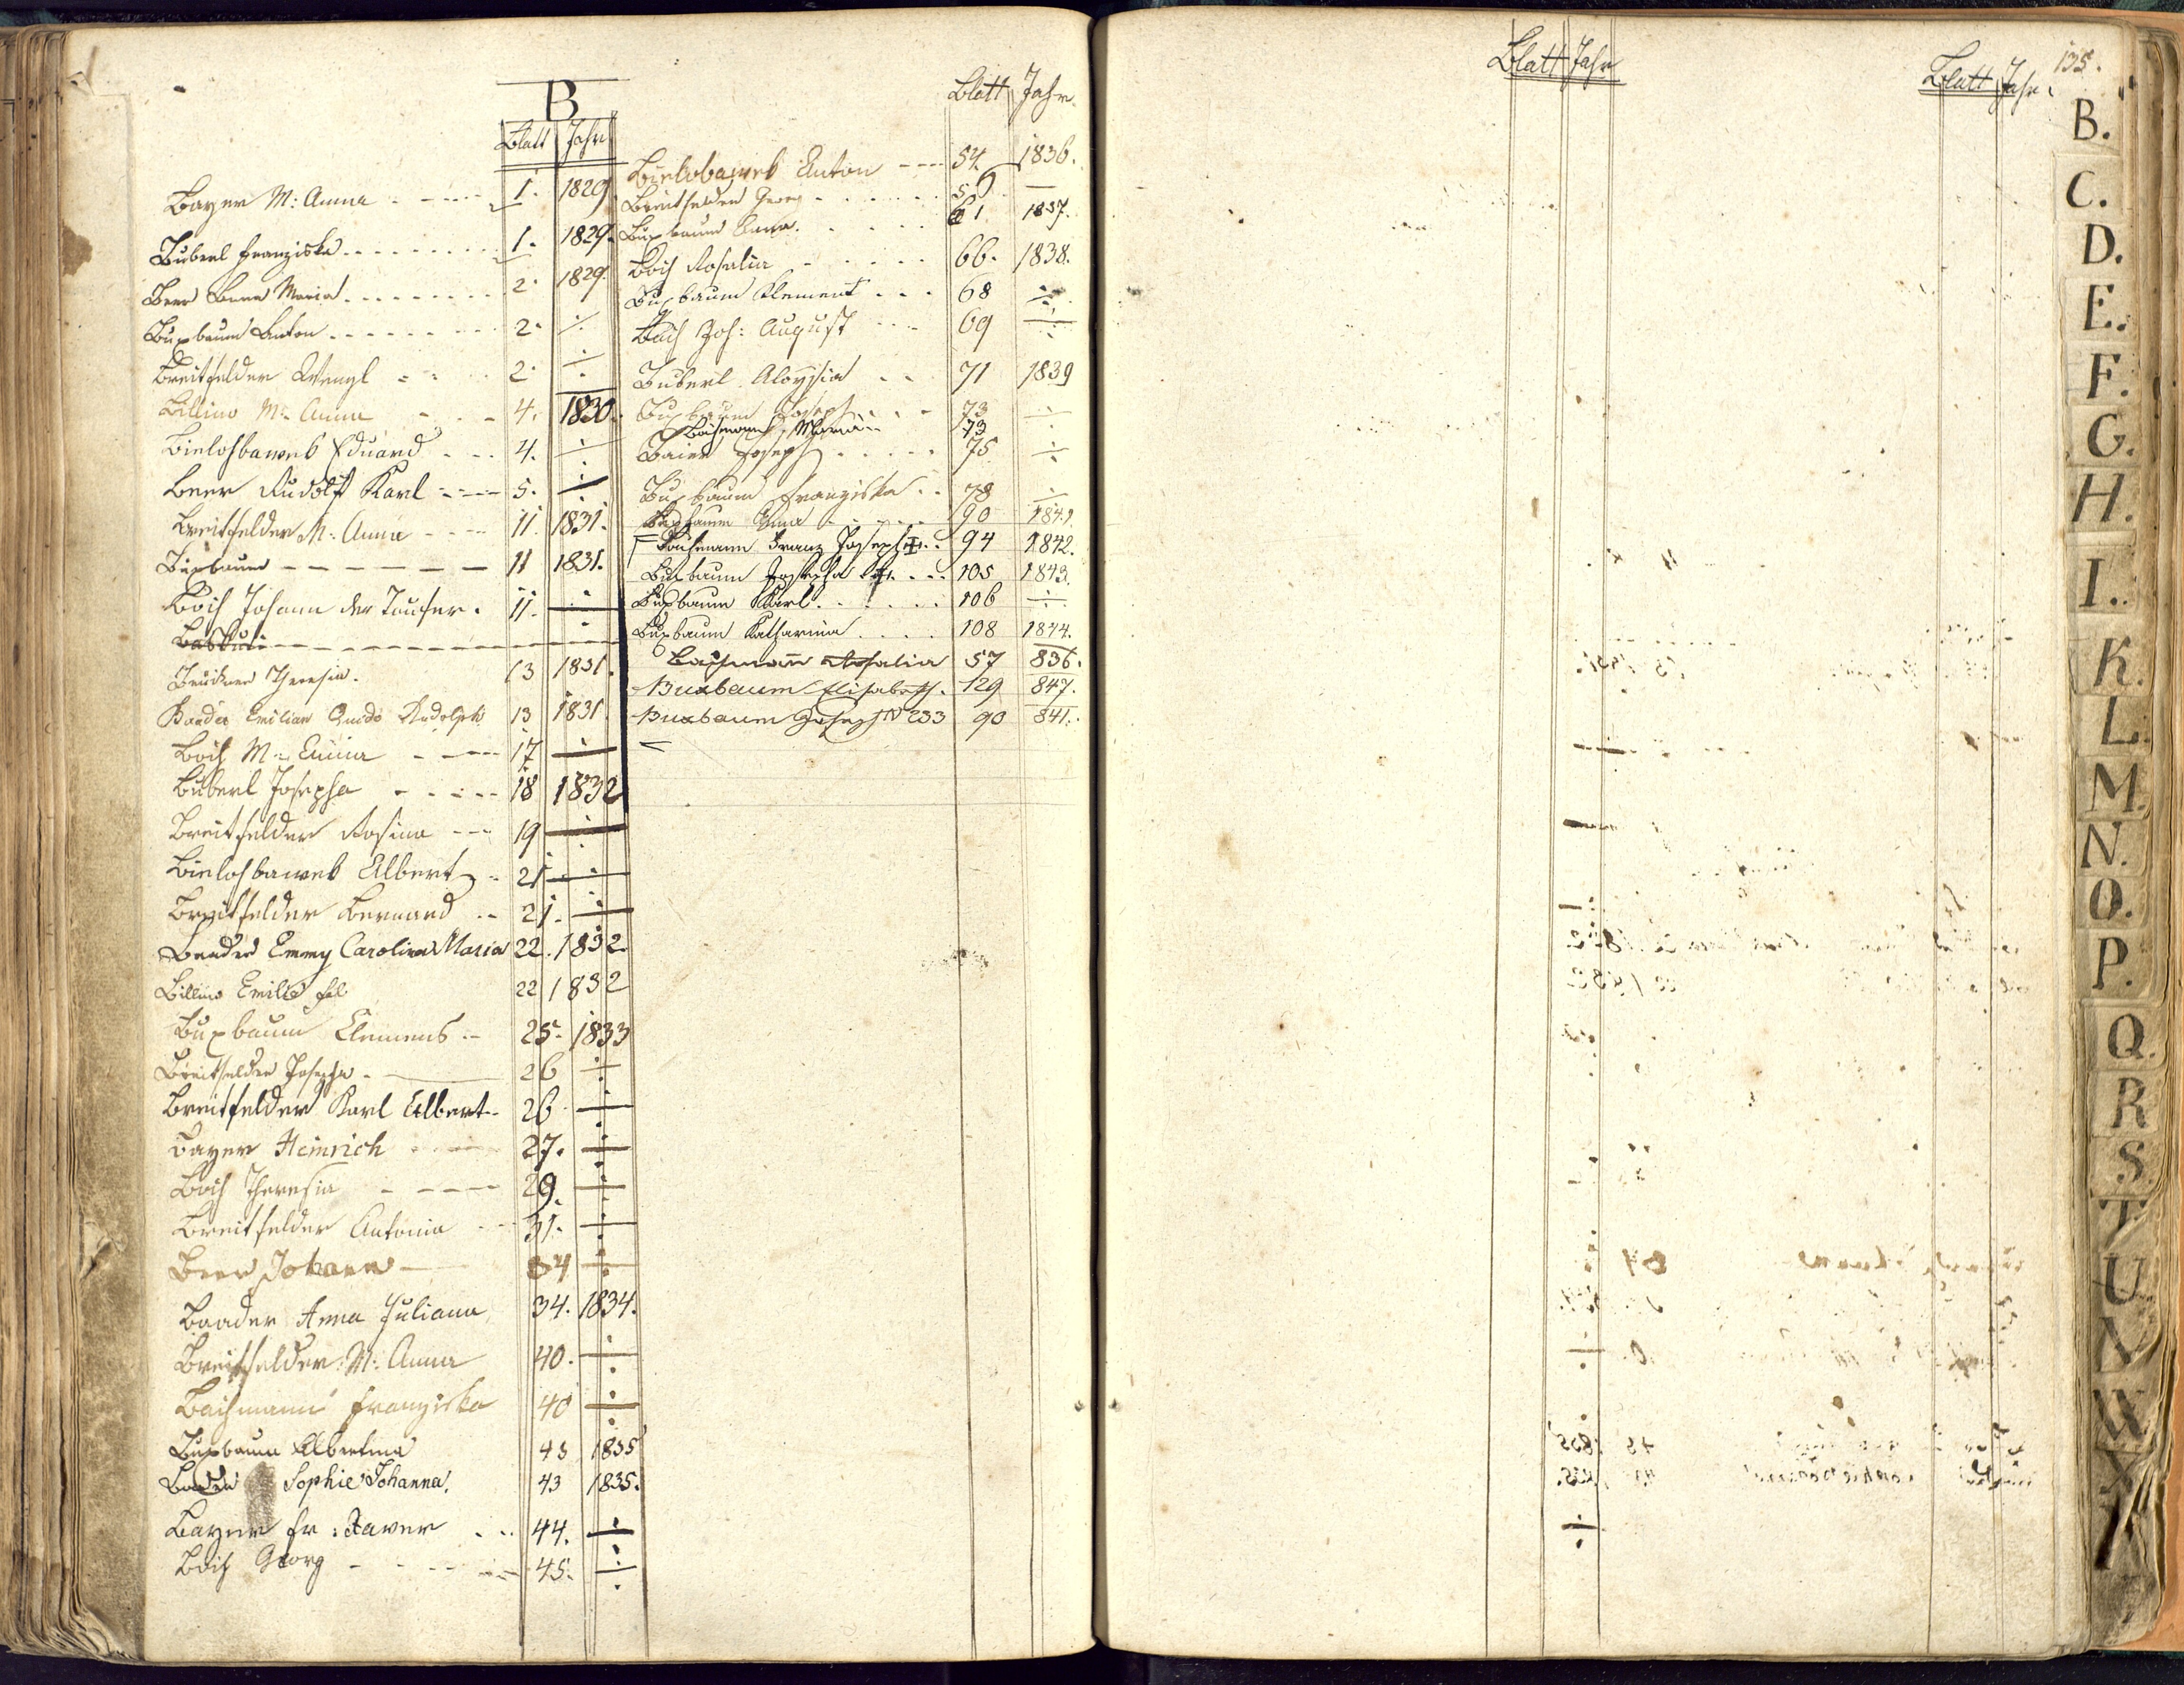 B
Blatt Jahr
Bayer M: Anna 1. 1829
Buberl Franziska 1. 1829.
Beer Anna Maria 2. 1829.
Buxbaum Anton 2. ÷
Breitfelder Wenzl 2. ÷
Billino M: Anna 4. 1830.
Bielohbaweb Eduard 4. ÷
Beer Rudolf Karl 5. ÷
Breitfelder M: Anna 11. 1831.
Buxbaum 11 1831.
Boih Johann der Taufer. 11. ÷
Bruckner Theresia. 13 1831.
Baader Emilian Quido Rudolph 13 1831.
Boih M: Anna 17 ÷
Buberl Josepha 18 1832
Breitfelder Rosina 19 ÷
Bielohbaweb Albert 21 ÷
Breitfelder Bernard 21. ÷
Baader Emmy Carolina Maria 22. 1832.
Billino Emilie 22 1832
Buxbaum Clemens 25. 1833
Breitfelder Josepha 26 ÷
Breitfelder Karl Albert 26 ÷
Bayer Heinrich 27. ÷
Boih Theresia 29. ÷
Breitfelder Antonia 31. ÷
Beer Johann 34 ÷
Baader Anna Juliana 34. 1834.
Breitfelder M: Anna 40. ÷
Bachmann Franziska 40 ÷
Buxbaum Albertina 43 1835
Baader Sophie Johanna. 43 1835.
Bayer Fr: Xaver 44. ÷
Boih Georg 45. ÷
Blatt Jahr.
Bielohbaweb Anton 54. 1836.
Breitfelder Georg 56 —
Buxbaum Anna. 61. 1837.
Boih Rosalia 66. 1838.
Buxbaum Clement 68 ÷
Boih Joh: August 69 ÷
Buberl Aloysia 71 1839
Buxbaum Joseph 73 ÷
Bachmann Maria 73
Baier Joseph 75 ÷
Buxbaum Franziska 78 ÷
Buxbaum Anna 90 1841
Bachmann Franz Joseph 94 1842.
Buxbaum Josepha 105 1843.
Buxbaum Karl 106 ÷
Buxbaum Katharina 108 1844.
Bachmann Rosalia 57 836.
Buxbaum Elisabeth. 129 847.
Buxbaum Joseph N 233 90 841.
Blatt Jahr
Blatt Jahr.
135.
B.
C.
D.
E.
F.
G.
H.
I.
K.
L.
M.
N.
O.
P.
Q.
R
S
T
U
V
W
X